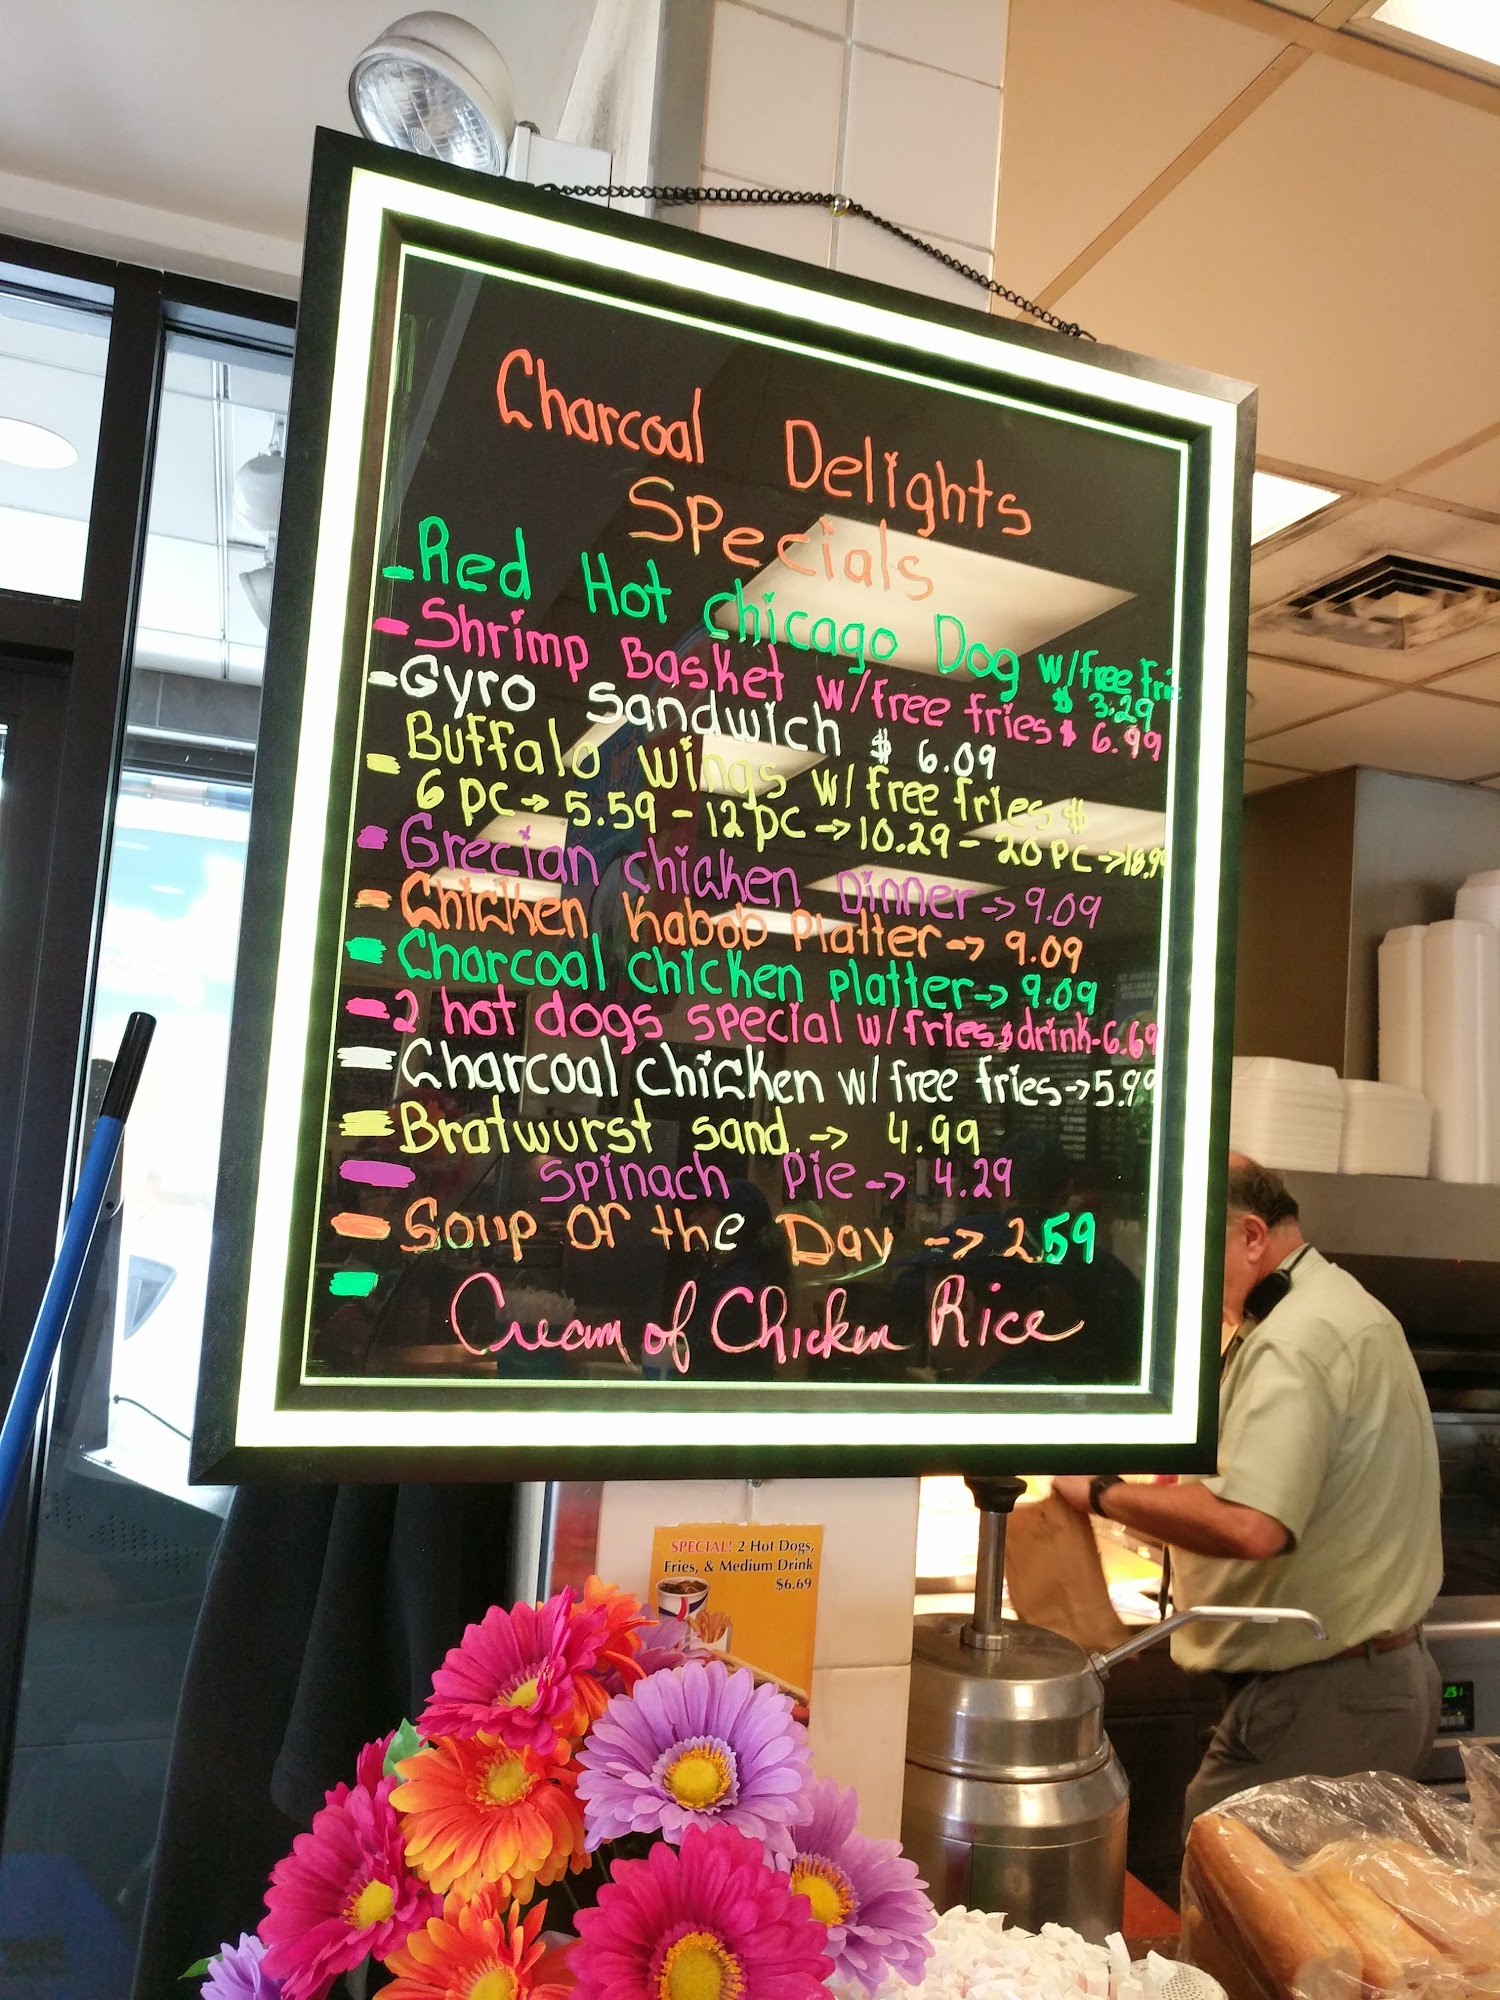 Charcoal Delights
Specials
- Red Hot Chicago Dog w/free frie
$ 3.29
- Shrimp Basket w/free fries $ 6.99
- Gyro sandwich $ 6.09
- Buffalo wings w/ free fries $
6 pc → 5.59 - 12 pc → 10.29 - 20 pc →
- Grecian chicken Dinner → 9.09
- Chicken Kabob Platter → 9.09
- Charcoal chicken platter → 9.09
- 2 hot dogs special w/fries & drink - 6.69
- Charcoal chicken w/ free fries → 5.99
- Bratwurst sand. → 4.99
- Spinach Pie → 4.29
- Soup Of the Day → 2.59
- Cream of Chicken Rice
SPECIAL! 2 Hot Dogs,
Fries, & Medium Drink
$6.69